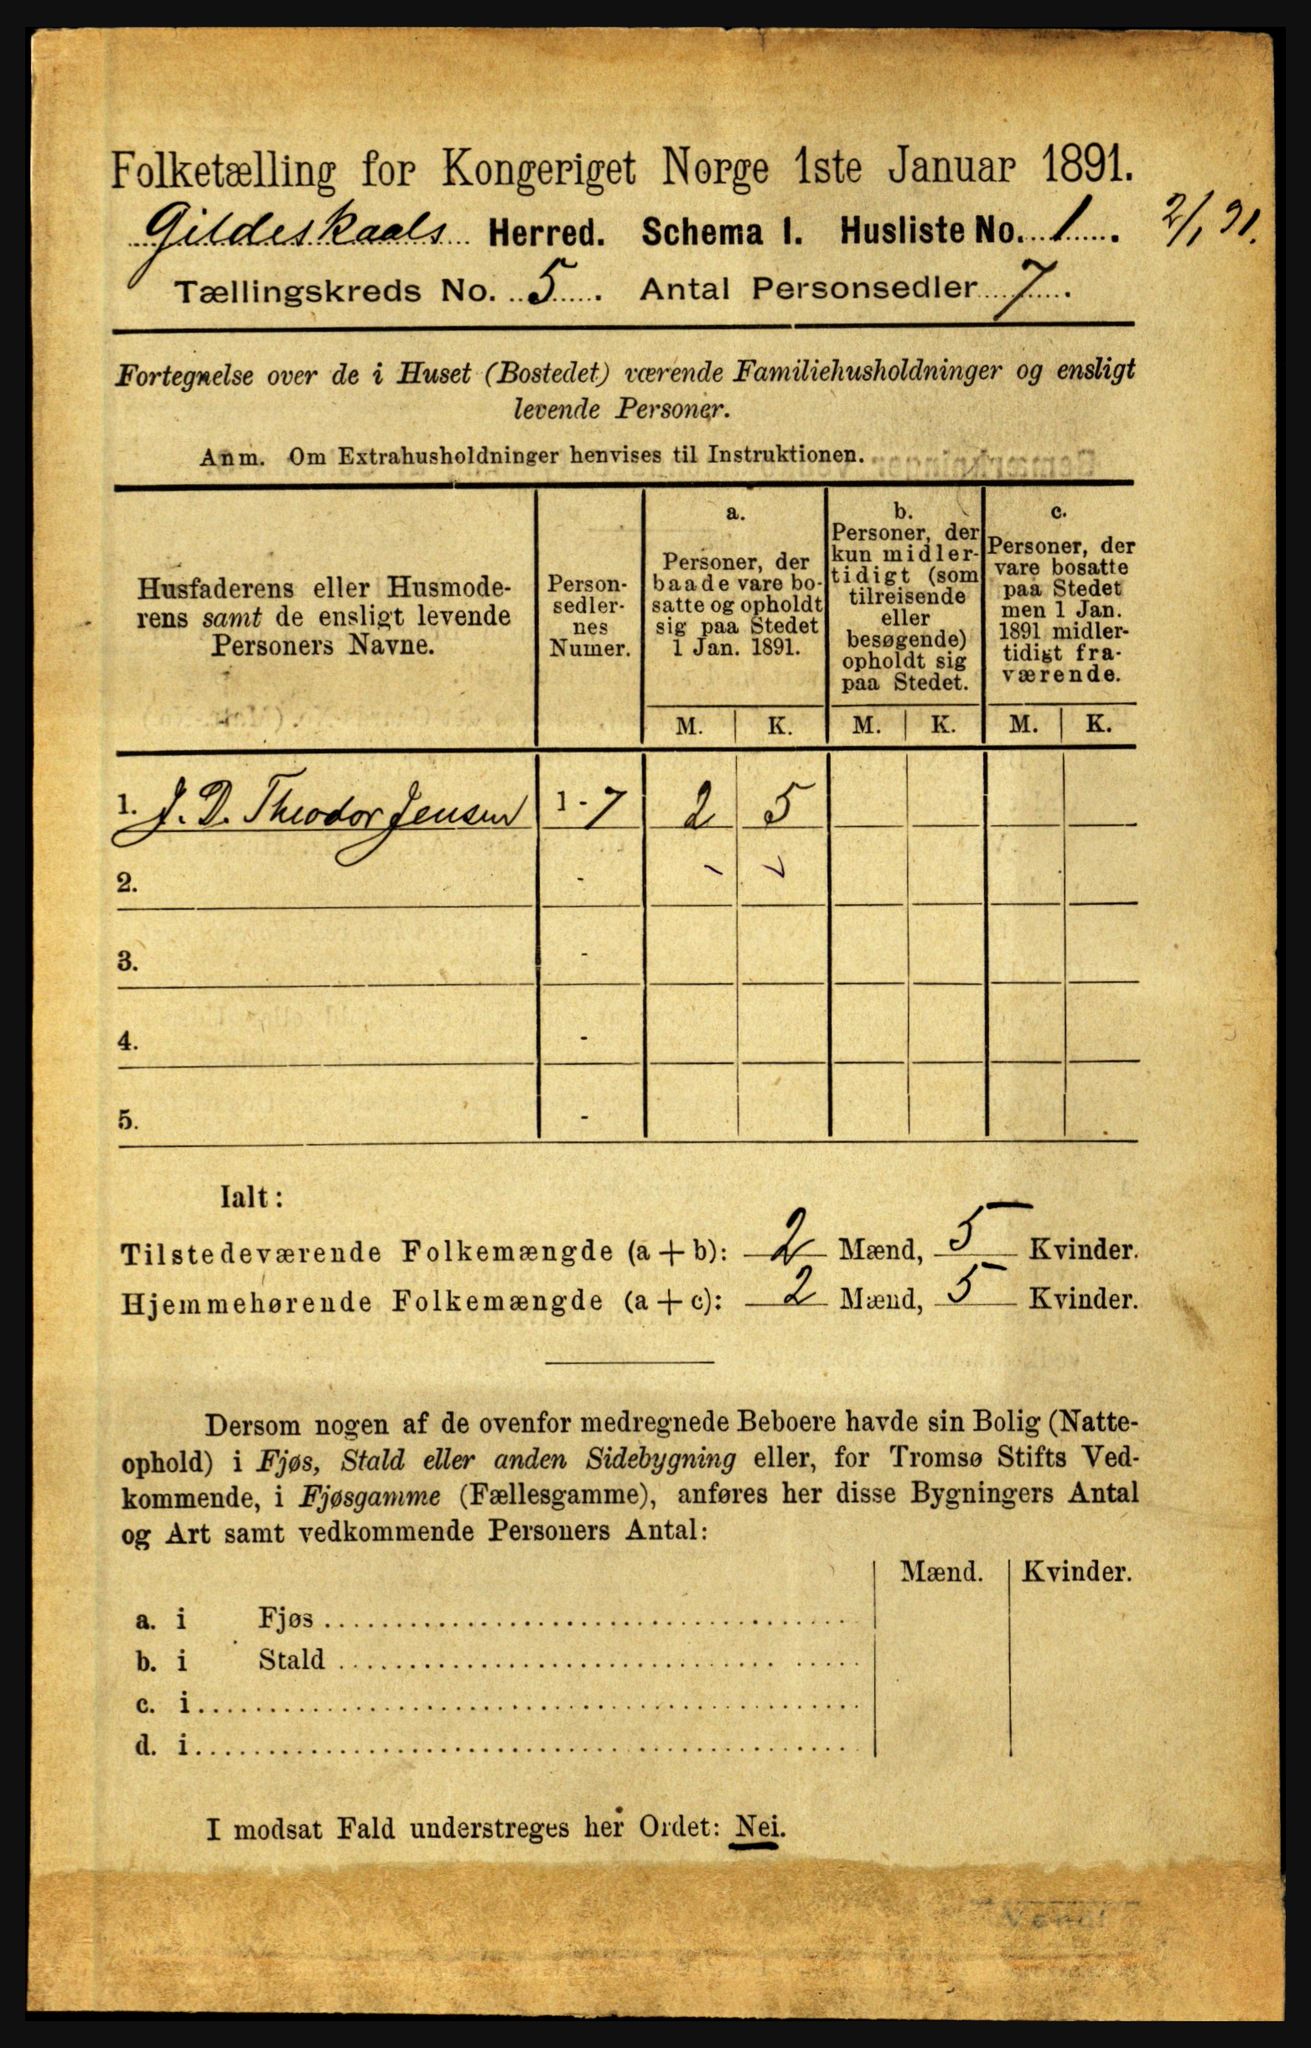 Folketælling for Kongeriget Norge 1ste Januar 1891.
Gildeskaals Herred. Schema I. Husliste No. 1. 2/1 91.
Tællingskreds No. 5. Antal Personsedler 7.
Fortegnelse over de i Huset (Bostedet) værende Familiehusholdninger og ensligt
levende Personer.
Anm. Om Extrahusholdninger henvises til Instruktionen.
Husfaderens eller Husmode-
rens samt de ensligt levende
Personers Navne.
Person-
sedler-
nes
Numer.
a.
Personer, der
baade vare bo-
satte og opholdt
sig paa Stedet
1 Jan. 1891.
b.
Personer, der
kun midler-
tidigt (som
tilreisende
eller
besøgende)
opholdt sig
paa Stedet.
c.
Personer, der
vare bosatte
paa Stedet
men 1 Jan.
1891 midler-
tidigt fra-
værende.
M. K. M. K. M. K.
1. J. D. Theodor Jensen 1 - 7 2 5
2. -
3. -
4. -
5. -
Ialt:
Tilstedeværende Folkemængde (a + b): 2 Mænd, 5 Kvinder.
Hjemmehørende Folkemængde (a + c): 2 Mænd, 5 Kvinder.
Dersom nogen af de ovenfor medregnede Beboere havde sin Bolig (Natte-
ophold) i Fjøs, Stald eller anden Sidebygning eller, for Tromsø Stifts Ved-
kommende, i Fjøsgamme (Fællesgamme), anføres her disse Bygningers Antal
og Art samt vedkommende Personers Antal:
Mænd. Kvinder.
a. i Fjøs
b. i Stald
c. i
d. i
I modsat Fald understreges her Ordet: Nei.